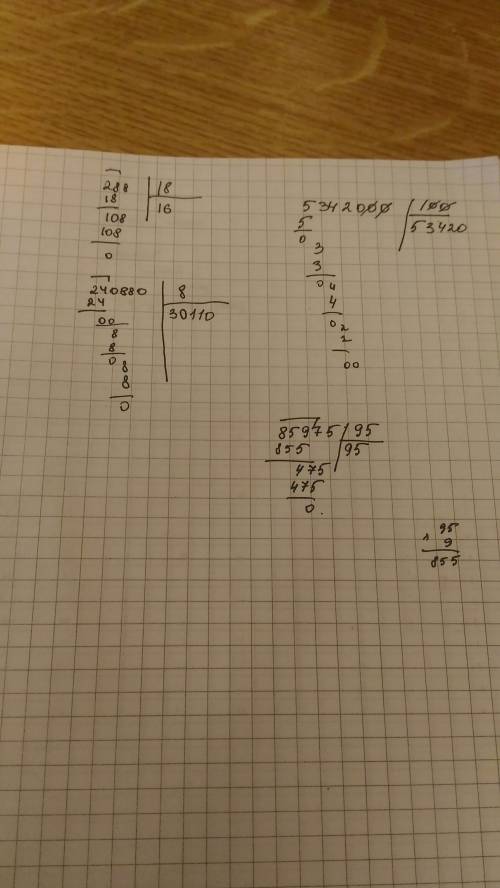 288 18
18 16
108
108
0
240880 8
24 30110
00
8
8
0 8
8
0
5342000 100
5 53420
0 3
3
0 4
4
0 2
2
00
85975 95
855 95
475
475
0.
95
9
855